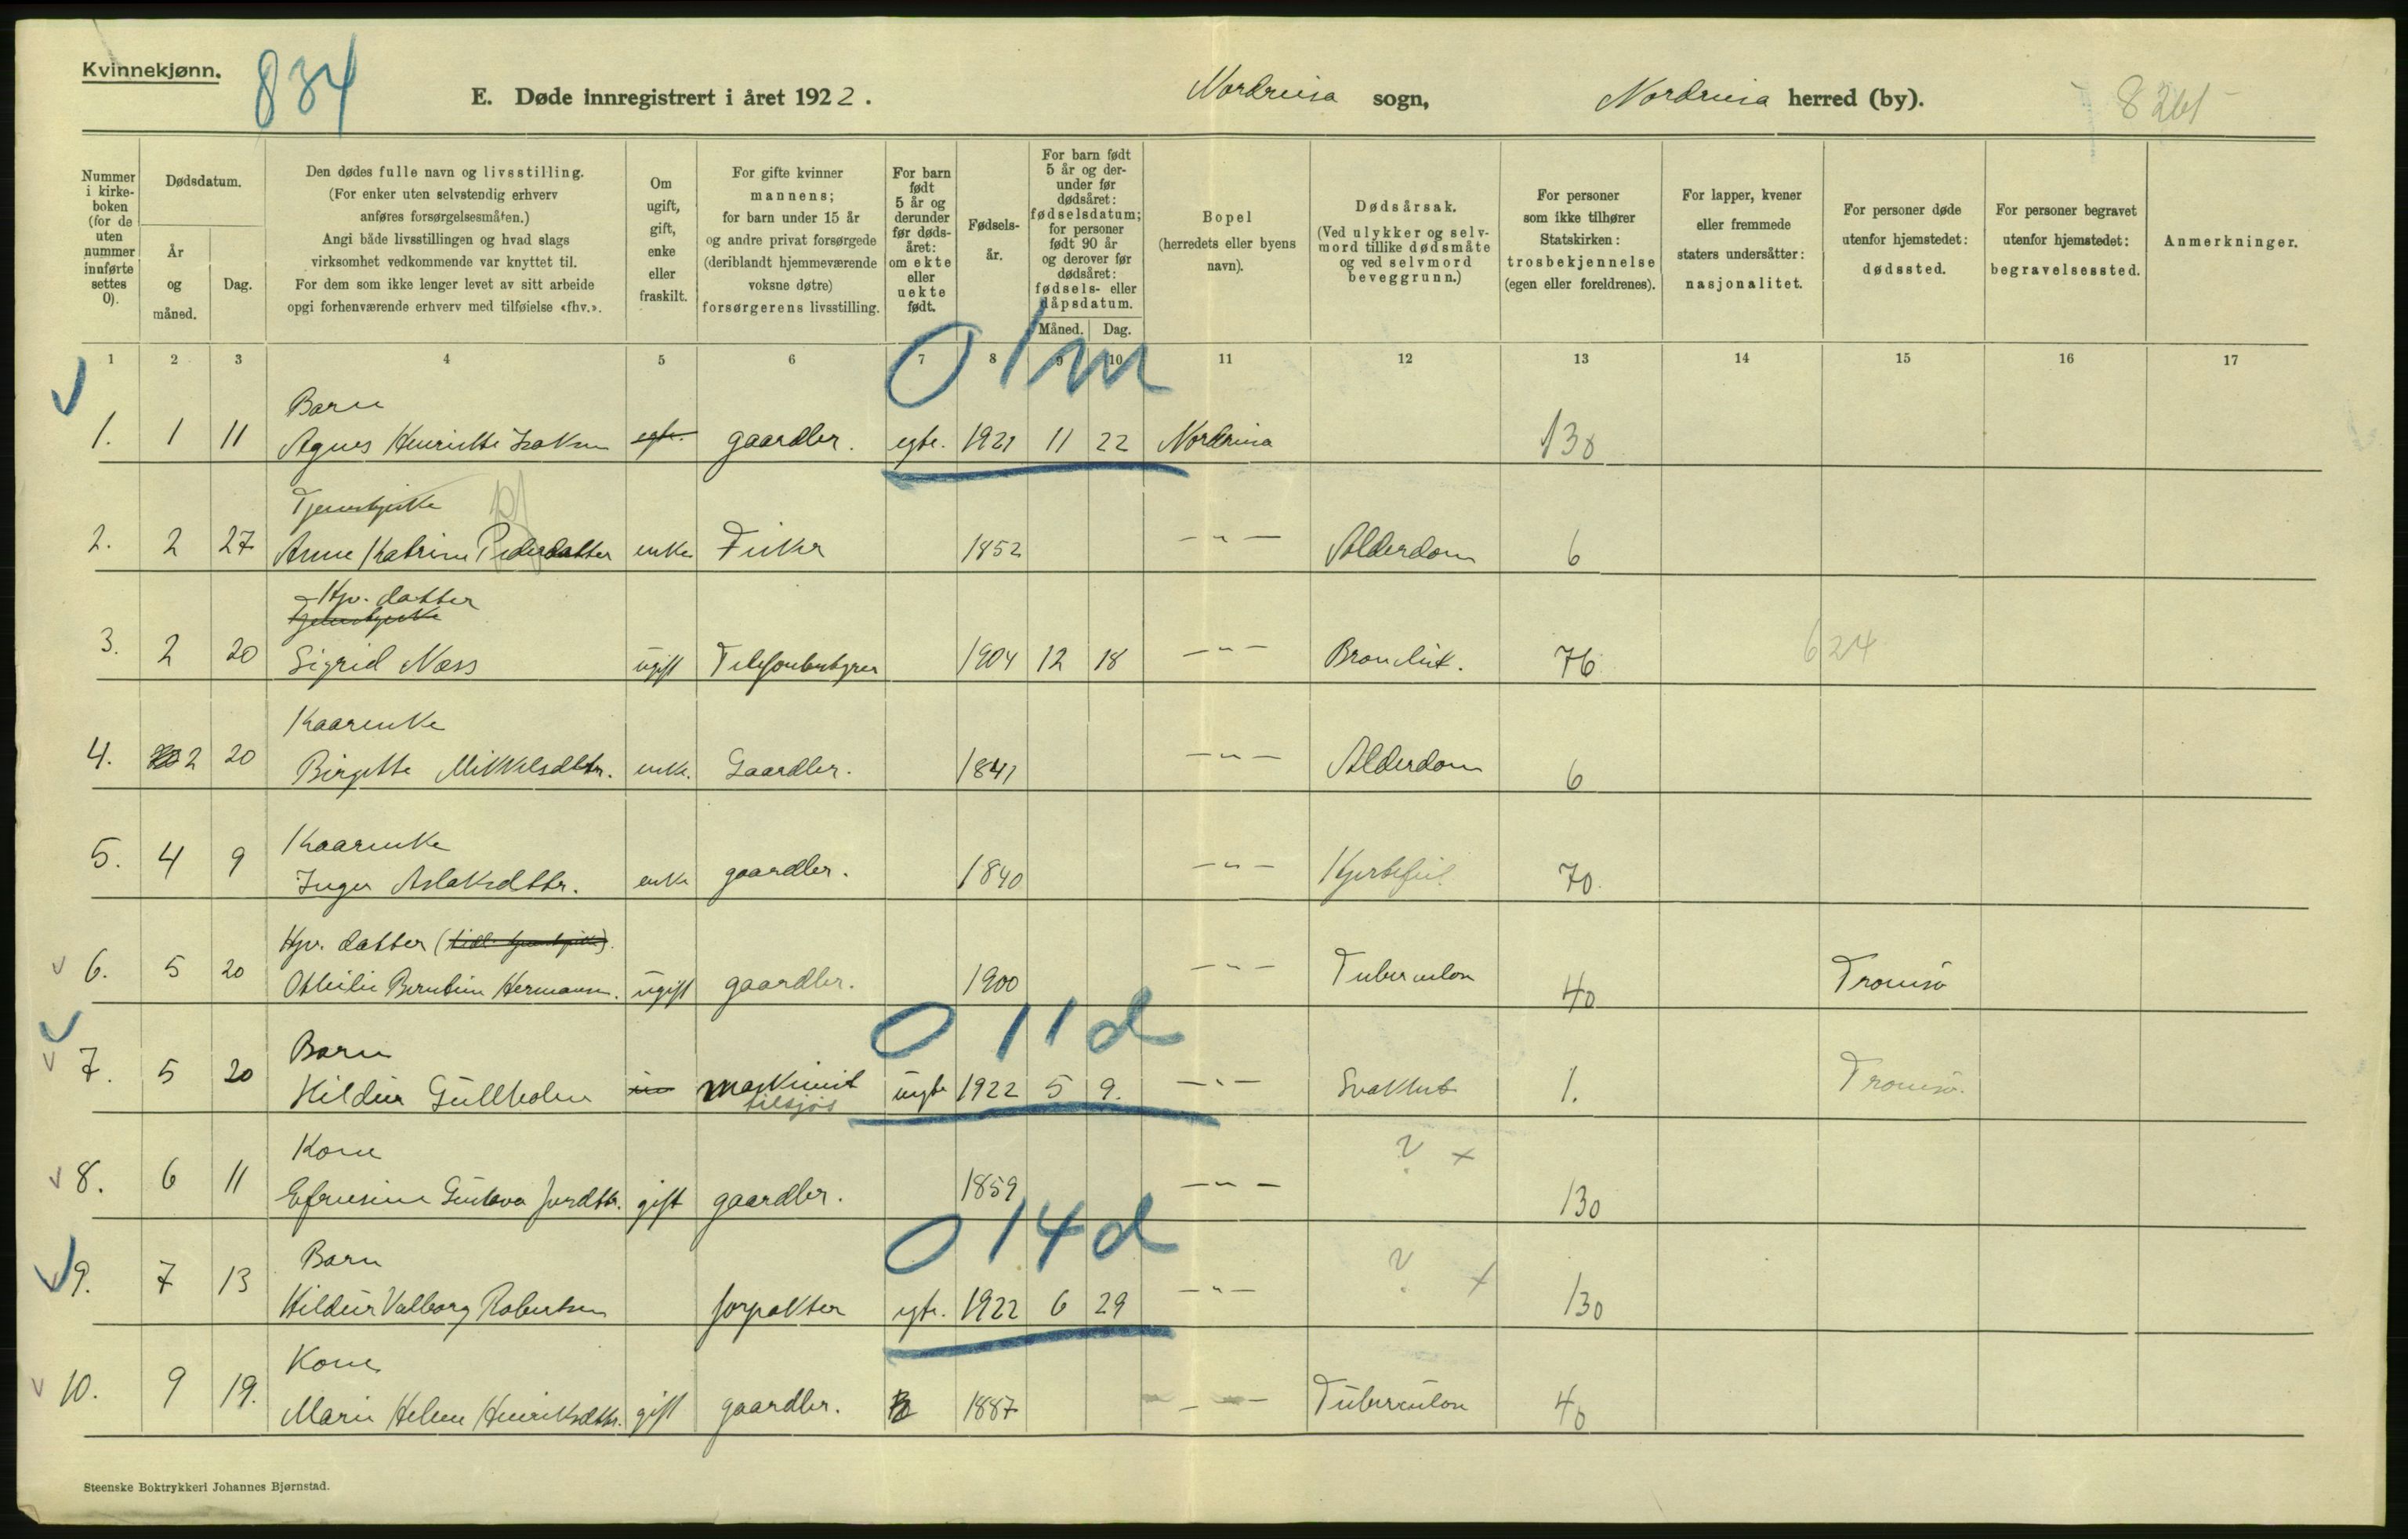 Kvinnekjønn.
834
E. Døde innregistrert i året 1922.
Nordreisa sogn,
Nordreisa herred (by).
8261
Nummer i kirke-boken (for de uten nummer innførte settes 0).
Dødsdatum.
År og måned.
Dag.
Den dødes fulle navn og livsstilling.
(For enker uten selvstendig erhverv
anføres forsørgelsesmåten.)
Angi både livsstillingen og hvad slags
virksomhet vedkommende var knyttet til.
For dem som ikke lenger levet av sitt arbeide
opgi forhenværende erhverv med tilføielse «fhv.».
Om ugift, gift, enke eller fraskilt.
For gifte kvinner
mannens;
for barn under 15 år
og andre privat forsørgede
(deriblandt hjemmeværende
voksne døtre)
forsørgerens livsstilling.
For barn født 5 år og derunder før døds-året: om ekte eller uekte født.
Fødsels-år.
For barn født 5 år og der-under før dødsåret: fødselsdatum; for personer født 90 år og derover før dødsåret: fødsels- eller dåpsdatum.
Måned. Dag.
Bopel
(herredets eller byens
navn).
Dødsårsak.
(Ved ulykker og selv-
mord tillike dødsmåte
og ved selvmord
beveggrunn.)
For personer
som ikke tilhører
Statskirken:
trosbekjennelse
(egen eller foreldrenes).
For lapper, kvener
eller fremmede
staters undersåtter:
nasjonalitet.
For personer døde
utenfor hjemstedet:
dødssted.
For personer begravet
utenfor hjemstedet:
begravelsessted.
Anmerkninger.
1 2 3 4 5 6 7 8 9 10 11 12 13 14 15 16 17
0 1 m
Barn
1. 1 11 Agnes Henriette Isaksen egte. gaardbr. egte. 1921 11 22 Nordreisa 130
Tjenestpike
2. 2 27 Anne Katrine Pedersdatter enke Fisker 1852 — " — Alderdom 6
Hjv. datter
Tjenestpike
3. 2 20 Sigrid Næss ugift Telefonbestyrer 1904 12 18 — " — Bronchit. 76 624
Kaarenke
4. 2 20 Birgitte Mikkelsdttr. enke. Gaardbr. 1841 — " — Alderdom 6
Kaarenke
5. 4 9 Inger Aslaksdttr. enke gaardbr. 1840 — " — Hjertefeil. 70.
Hjv. datter (tidl. tjenestpike).
6. 5 20 Othilie Berntine Hermansen. ugift gaardbr. 1900 — " — Tuberculose 40 Tromsø
0 11 d
Barn
7. 5 20 Hildur Gullholm maskinist uegte 1922 5 9. — " — Svakhet 1. Tromsø.
tilsjøs
Kone
8. 6 11 Efrusine Gustava Jorsdttr. gift gaardbr. 1859 — " — ? + 130
0 14 d
Barn
9. 7 13 Hildur Valborg Robertsen forpakter egte. 1922 6 29 — " — ? + 130
Kone
10. 9 19. Marie Helene Henriksdttr. gift gaardbr. 1887 — " — Tuberculose 40
Steenske Boktrykkeri Johannes Bjørnstad.